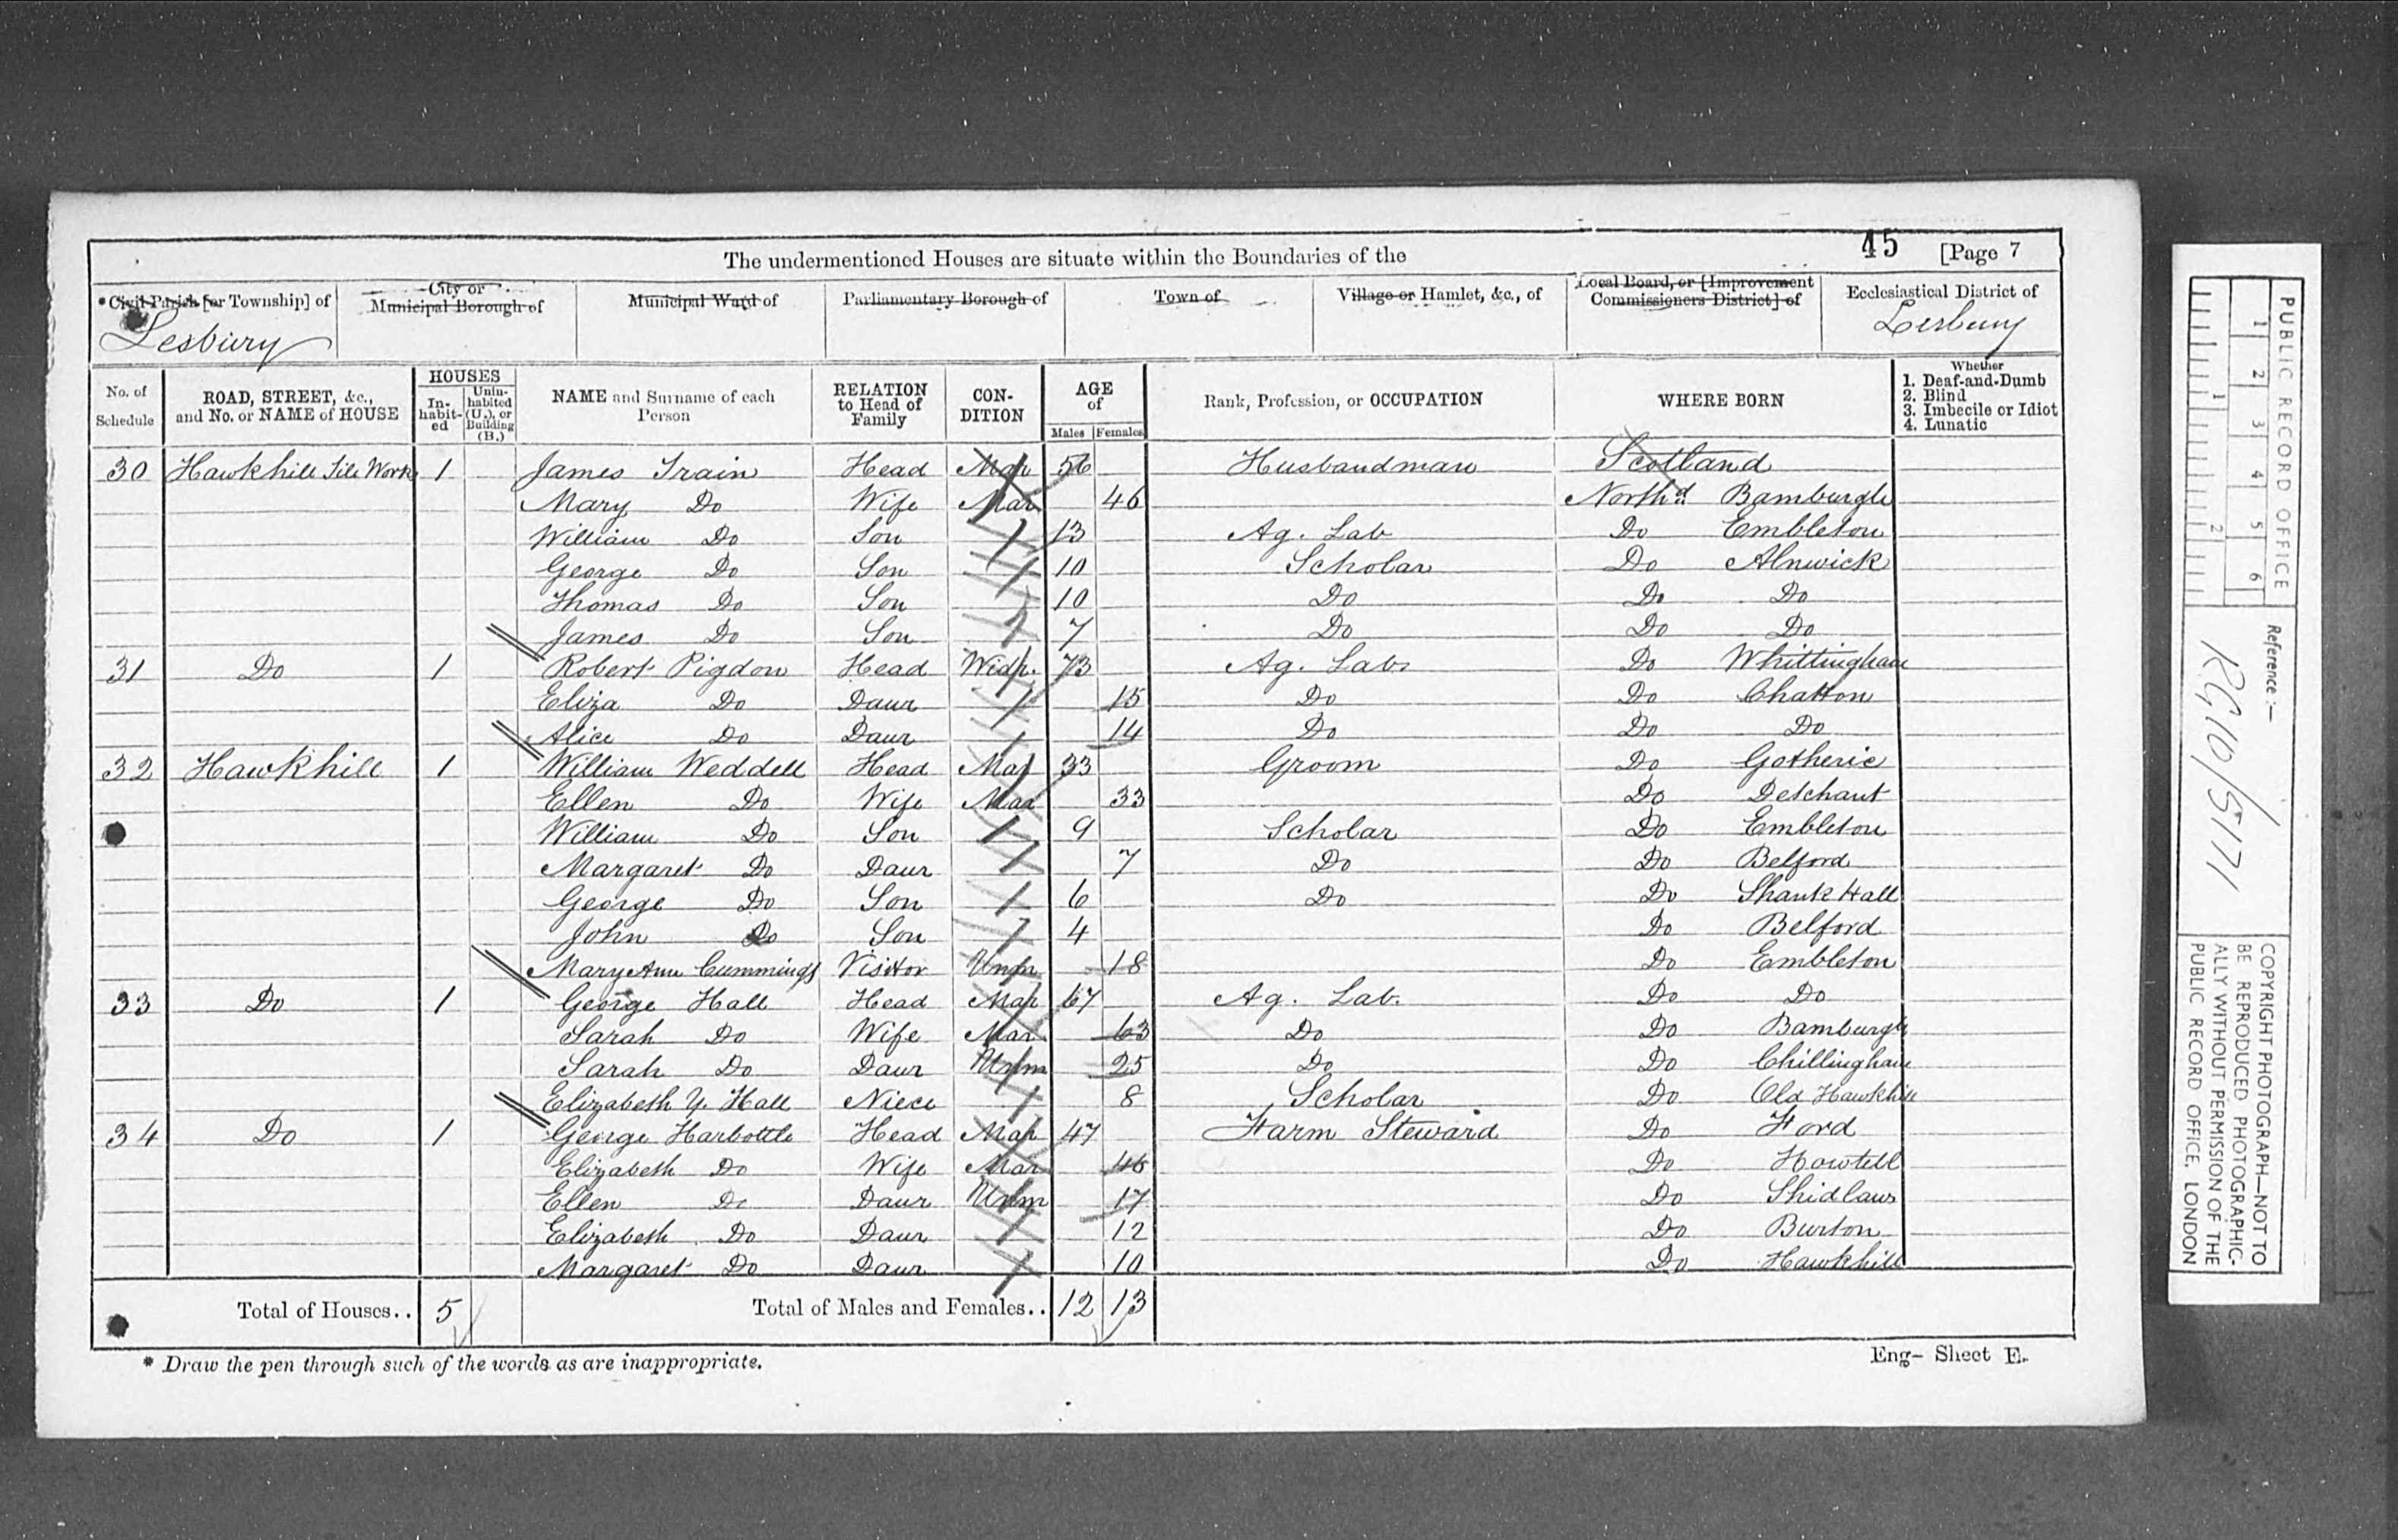 45 [Page 7
The undermentioned Houses are situate within the Boundaries of the
*Civil Parish [or Township] of
City or Municipal Borough of
Municipal Ward of
Parliamentary Borough of
Town of
Village or Hamlet, &c., of
Local Board, or [Improvement Commissioners District] of
Ecclesiastical District of
Lesbury Lesbury
No. of Schedule
ROAD, STREET, &c., and No. or NAME of HOUSE
HOUSES
In-habit-ed
Unin-habited (U.), or Building (B.)
NAME and Surname of each Person
RELATION to Head of Family
CON-DITION
AGE of
Males Females
Rank, Profession, or OCCUPATION
WHERE BORN
Whether
1. Deaf-and-Dumb
2. Blind
3. Imbecile or Idiot
4. Lunatic
30 Hawkhill Tile Works 1 James Train Head Mar 56 Husbandman Scotland
Mary Do Wife Mar 46 Northd Bamburgh
William Do Son 13 Ag. Lab Do Embleton
George Do Son 10 Scholar Do Alnwick
Thomas Do Son 10 Do Do Do
James Do Son 7 Do Do Do
31 Do 1 Robert Pigdon Head Widr. 73 Ag. Lab. Do Whittingham
Eliza Do Daur 15 Do Do Chatton
Alice Do Daur 14 Do Do Do
32 Hawkhill 1 William Weddell Head Mar 33 Groom Do Gotheric
Ellen Do Wife Mar 33 Do Detchant
William Do Son 9 Scholar Do Embleton
Margaret Do Daur 7 Do Do Belford
George Do Son 6 Do Do Shank Hall
John Do Son 4 Do Belford
Mary Ann Cummings Visitor Unm 18 Do Embleton
33 Do 1 George Hall Head Mar 67 Ag. Lab. Do Do
Sarah Do Wife Mar 63 Do Do Bamburgh
Sarah Do Daur Unm 25 Do Do Chillingham
Elizabeth Y. Hall Niece 8 Scholar Do Old Hawkhill
34 Do 1 George Harbottle Head Mar 47 Farm Steward Do Ford
Elizabeth Do Wife Mar 46 Do Howtell
Ellen Do Daur Unm 17 Do Shidlaws
Elizabeth Do Daur 12 Do Burton
Margaret Do Daur 10 Do Hawkhill
Total of Houses.. 5 Total of Males and Females.. 12 13
* Draw the pen through such of the words as are inappropriate.
Eng- Sheet E.
PUBLIC RECORD OFFICE
1 2 3 4 5 6
1 2
Reference :-
RG10/5171
COPYRIGHT PHOTOGRAPH—NOT TO
BE REPRODUCED PHOTOGRAPHIC-
ALLY WITHOUT PERMISSION OF THE
PUBLIC RECORD OFFICE, LONDON